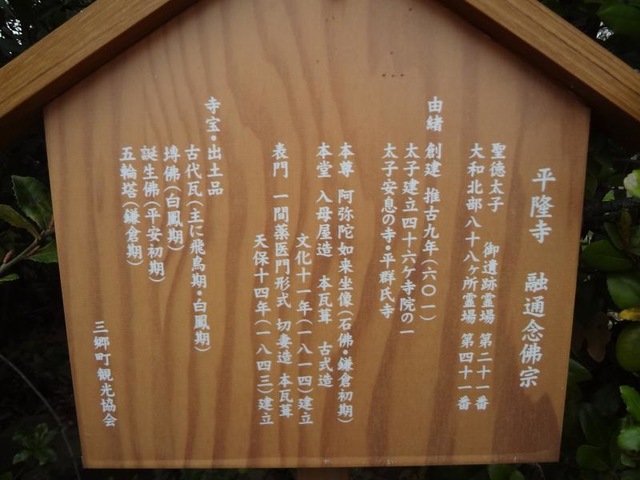 平隆寺 融通念佛宗
聖徳太子 御遺跡霊場 第二十一番
大和北部八十八ヶ所霊場 第四十一番
由緒 創建 推古九年(六〇一)
太子建立四十六ケ寺院の一
太子安息の寺・平群氏寺
本尊 阿弥陀如来坐像(石佛・鎌倉初期)
本堂 入母屋造 本瓦葺 古式造
文化十一年(一八一四)建立
表門 一間薬医門形式 切妻造 本瓦葺
天保十四年(一八四三)建立
寺宝・出土品
古代瓦(主に飛鳥期・白鳳期)
塼佛(白鳳期)
誕生佛(平安初期)
五輪塔(鎌倉期)
三郷町観光協会